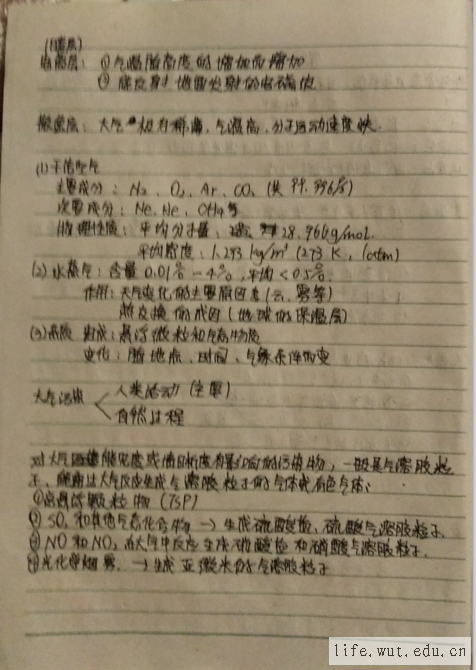 (暖层)
电离层: ①气温随高度的增加而增加
② 能反射地面发射的电磁波
散逸层: 大气极为稀薄,气温高,分子运动速度快.
(1)干洁空气
主要成分: N₂ 、O₂、Ar、CO₂ (共 99.996%)
次要成分: Ne、He、CH₄等
物理性质: 平均分子量: 28.966g/mol.
平均密度: 1.293 kg/m³ (273 K, 1atm)
(2) 水蒸气: 含量 0.01% - 4%, 平均 < 0.5%
作用: 天气变化的主要原因素(云、雾等)
热交换的成因 (地球的保温层)
(3)杂质 组成: 悬浮微粒和气态物质
变化: 随地点、时间、气象条件而变
大气污染
人类活动 (主要)
自然过程
对大气能见度或清日浊度有影响的污染物, 一般是气溶胶粒
子、能通过大气反应生成气溶胶粒子的气体或有色气体:
①总悬浮颗粒物 (TSP)
② SO₂ 和其他气态化合物 → 生成硫酸盐、硫酸气溶胶粒子.
③ NO 和 NO₂ 在大气中反应生成硝酸盐和硝酸气溶胶粒子.
④光化学烟雾. → 生成亚微米的气溶胶粒子
life.wut.edu.cn